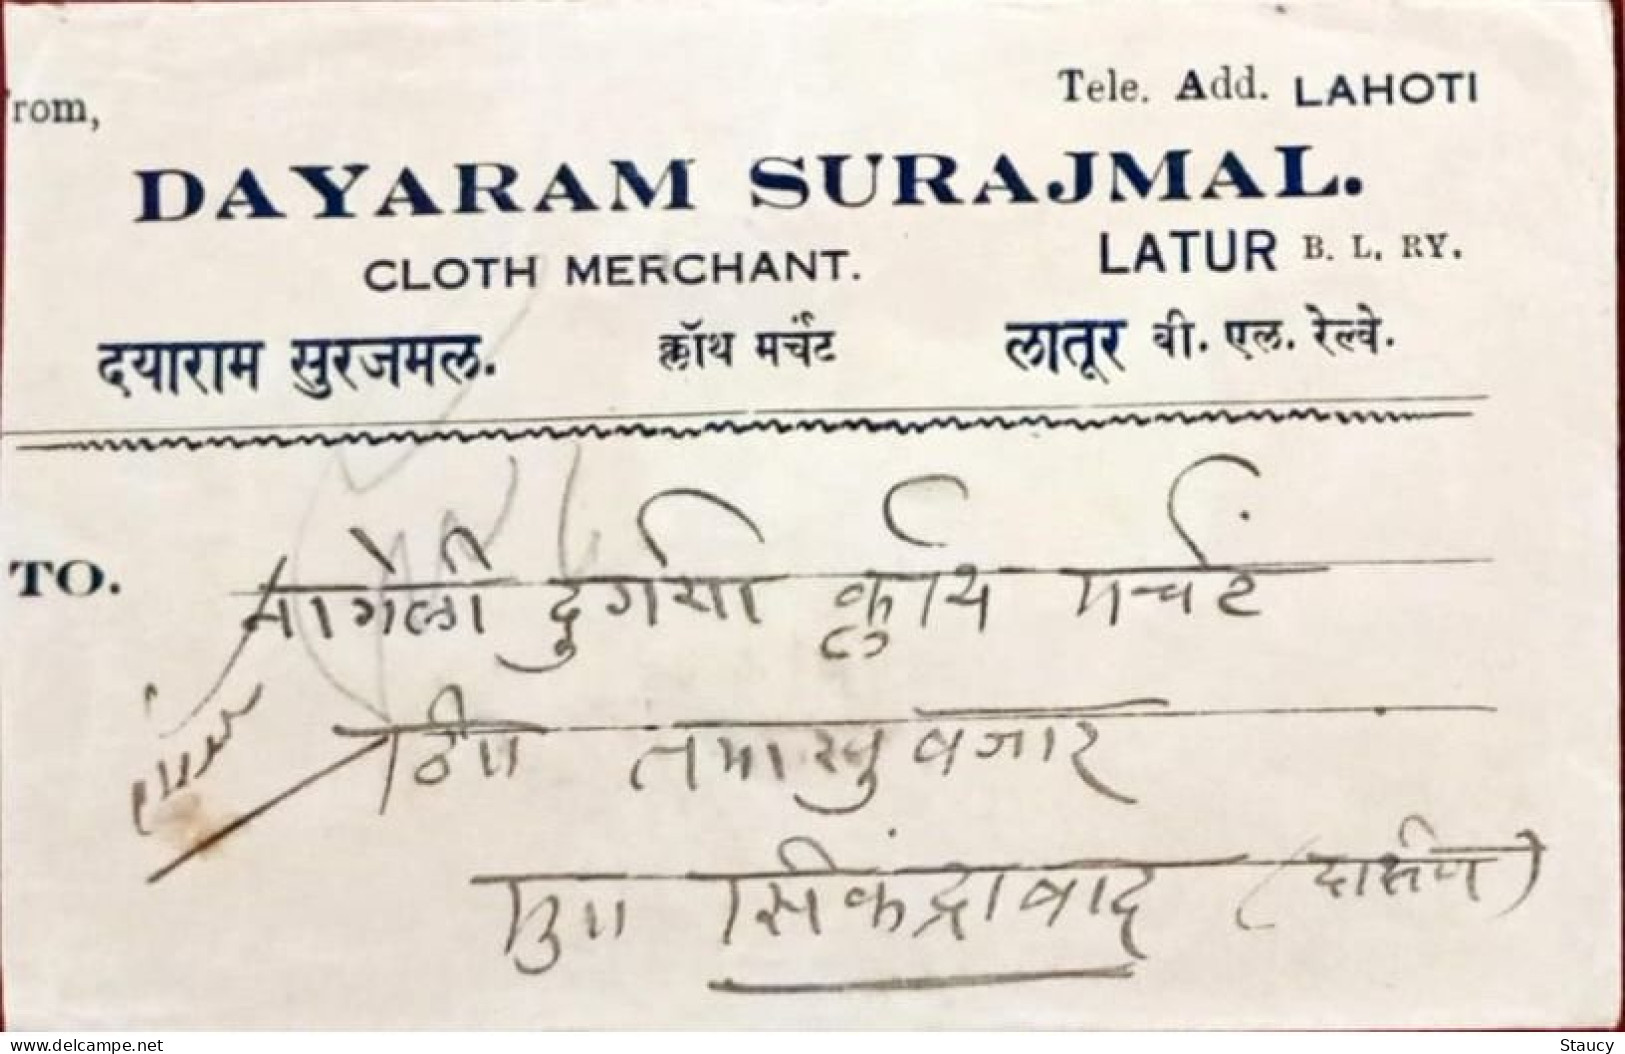 rom,
Tele. Add. LAHOTI
DAYARAM SURAJMAL.
CLOTH MERCHANT.
LATUR B. L. RY.
दयाराम सुरजमल. क्लॉथ मर्चंट लातूर बी. एल. रेल्वे.
TO.
क्लाथ मर्चंट
तमाखु बजार
सिकंद्राबाद
delcampe.net
Staucy